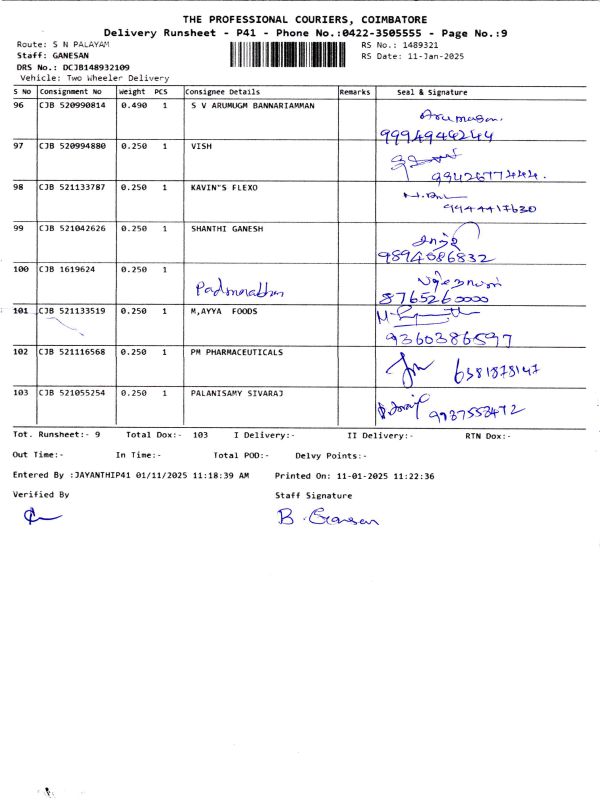 THE PROFESSIONAL COURIERS, COIMBATORE
Delivery Runsheet - P41 - Phone No.:0422-3505555 - Page No.:9
Route: S N PALAYAM RS No.: 1489321
Staff: GANESAN RS Date: 11-Jan-2025
DRS No.: DCJB148932109
Vehicle: Two Wheeler Delivery
S No Consignment No Weight PCS Consignee Details Remarks Seal & Signature
96 CJB 520990814 0.490 1 S V ARUMUGM BANNARIAMMAN
Arumugam.
9994944244
97 CJB 520994880 0.250 1 VISH
9942677444.
98 CJB 521133787 0.250 1 KAVIN"S FLEXO
9944417630
99 CJB 521042626 0.250 1 SHANTHI GANESH
9894086832
100 CJB 1619624 0.250 1
Padmanabhan
8765260000
101 CJB 521133519 0.250 1 M,AYYA FOODS
9360386597
102 CJB 521116568 0.250 1 PM PHARMACEUTICALS
6381878147
103 CJB 521055254 0.250 1 PALANISAMY SIVARAJ
9937553472
Tot. Runsheet:- 9 Total Dox:- 103 I Delivery:- II Delivery:- RTN Dox:-
Out Time:- In Time:- Total POD:- Delvy Points:-
Entered By :JAYANTHIP41 01/11/2025 11:18:39 AM Printed On: 11-01-2025 11:22:36
Verified By Staff Signature
B. Ganesan